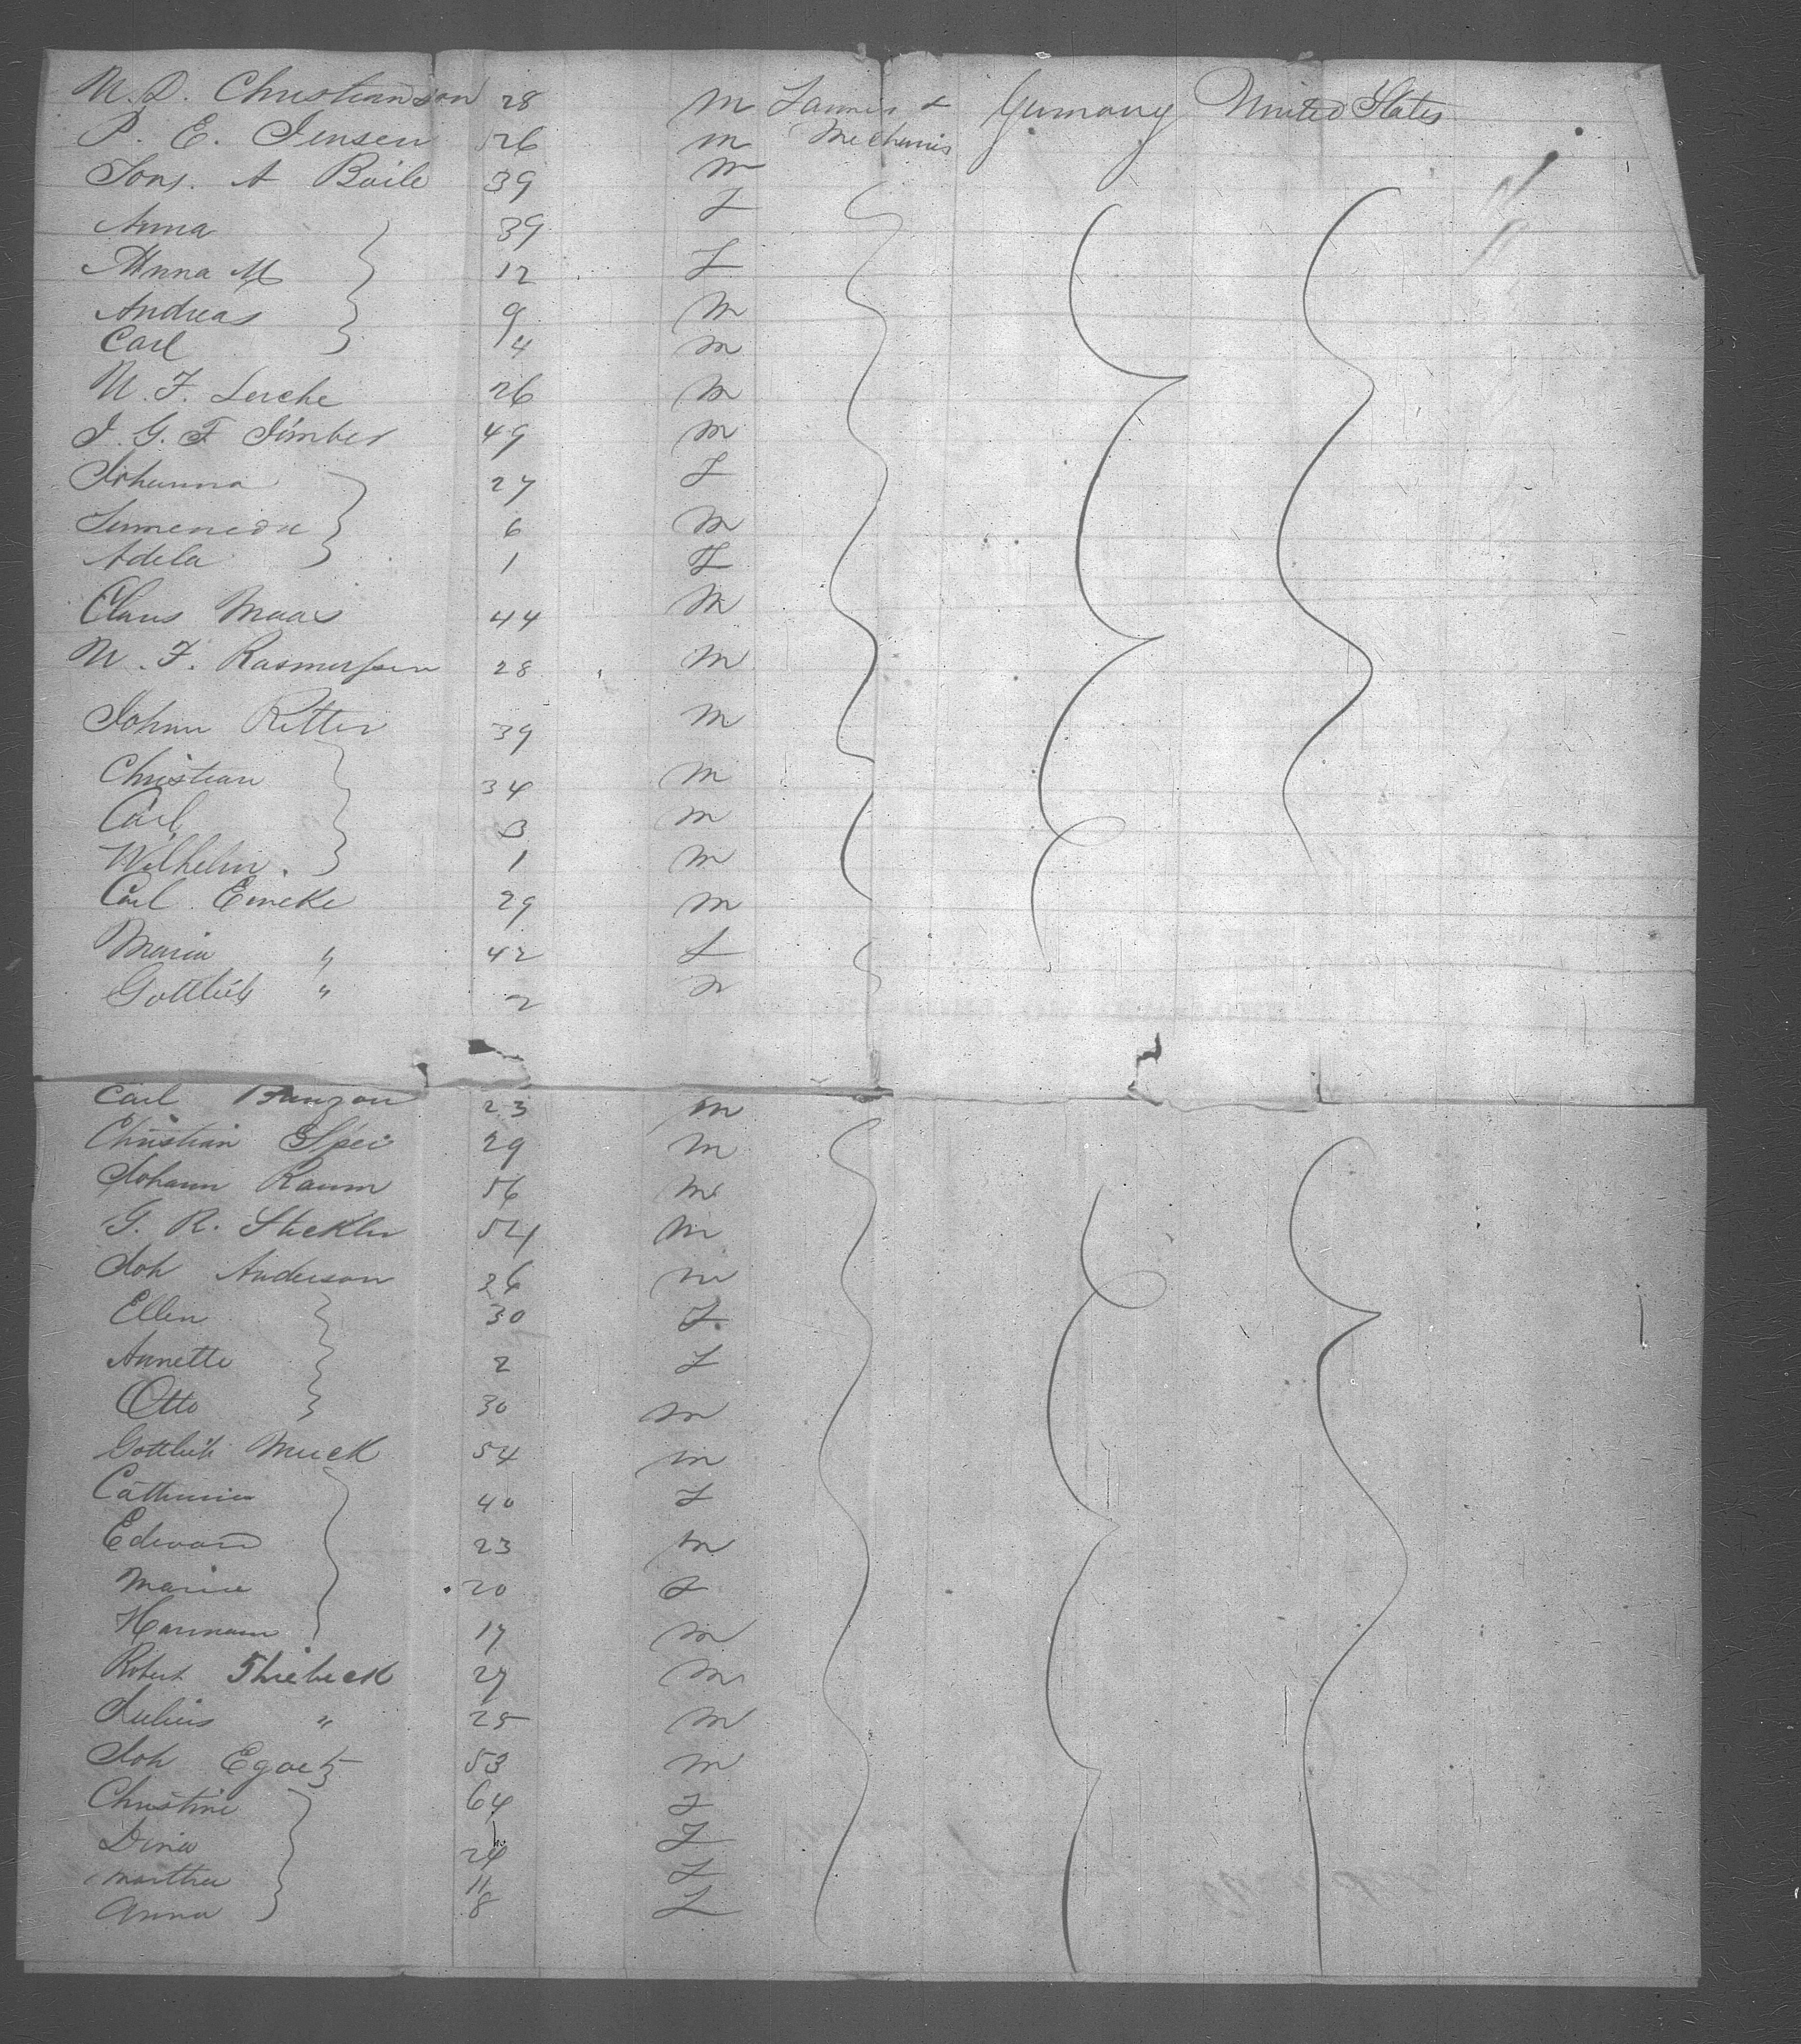 N. D. Christianson 28 M Farmers & Germany United States
P. E. Jensen 26 M Mechanics
Tons. A Boile 39 M
Anna 39 F
Anna M 12 F
Andreas 9 M
Carl 4 M
N. F. Lerche 26 M
J. G. F Jimbes 49 M
Johanna 27 F
6 M
Adela 1 F
Claus Maas 44 M
N. F. Rasmussen 28 M
Johann Ritter 39 M
Christian 34 M
Carl 3 M
Wilhelm. 1 M
Carl Emcke 29 M
Maria " 42 F
Gottlieb " 2 M
Carl 23 M
Christian 29 M
Johann Raum 56 M
G. R. Steckler 54 M
Joh Anderson 36 M
Ellen 30 F
Annette 2 F
Otto 30 M
Gottlieb Muck 54 M
Catherine 40 F
Edward 23 M
Marie 20 F
Hermann 17 M
Robert Shiebeck 27 M
Julius " 25 M
Joh Egaetz 53 M
Christine 64 F
Dina F
Martha 11 F
Anna 8 F